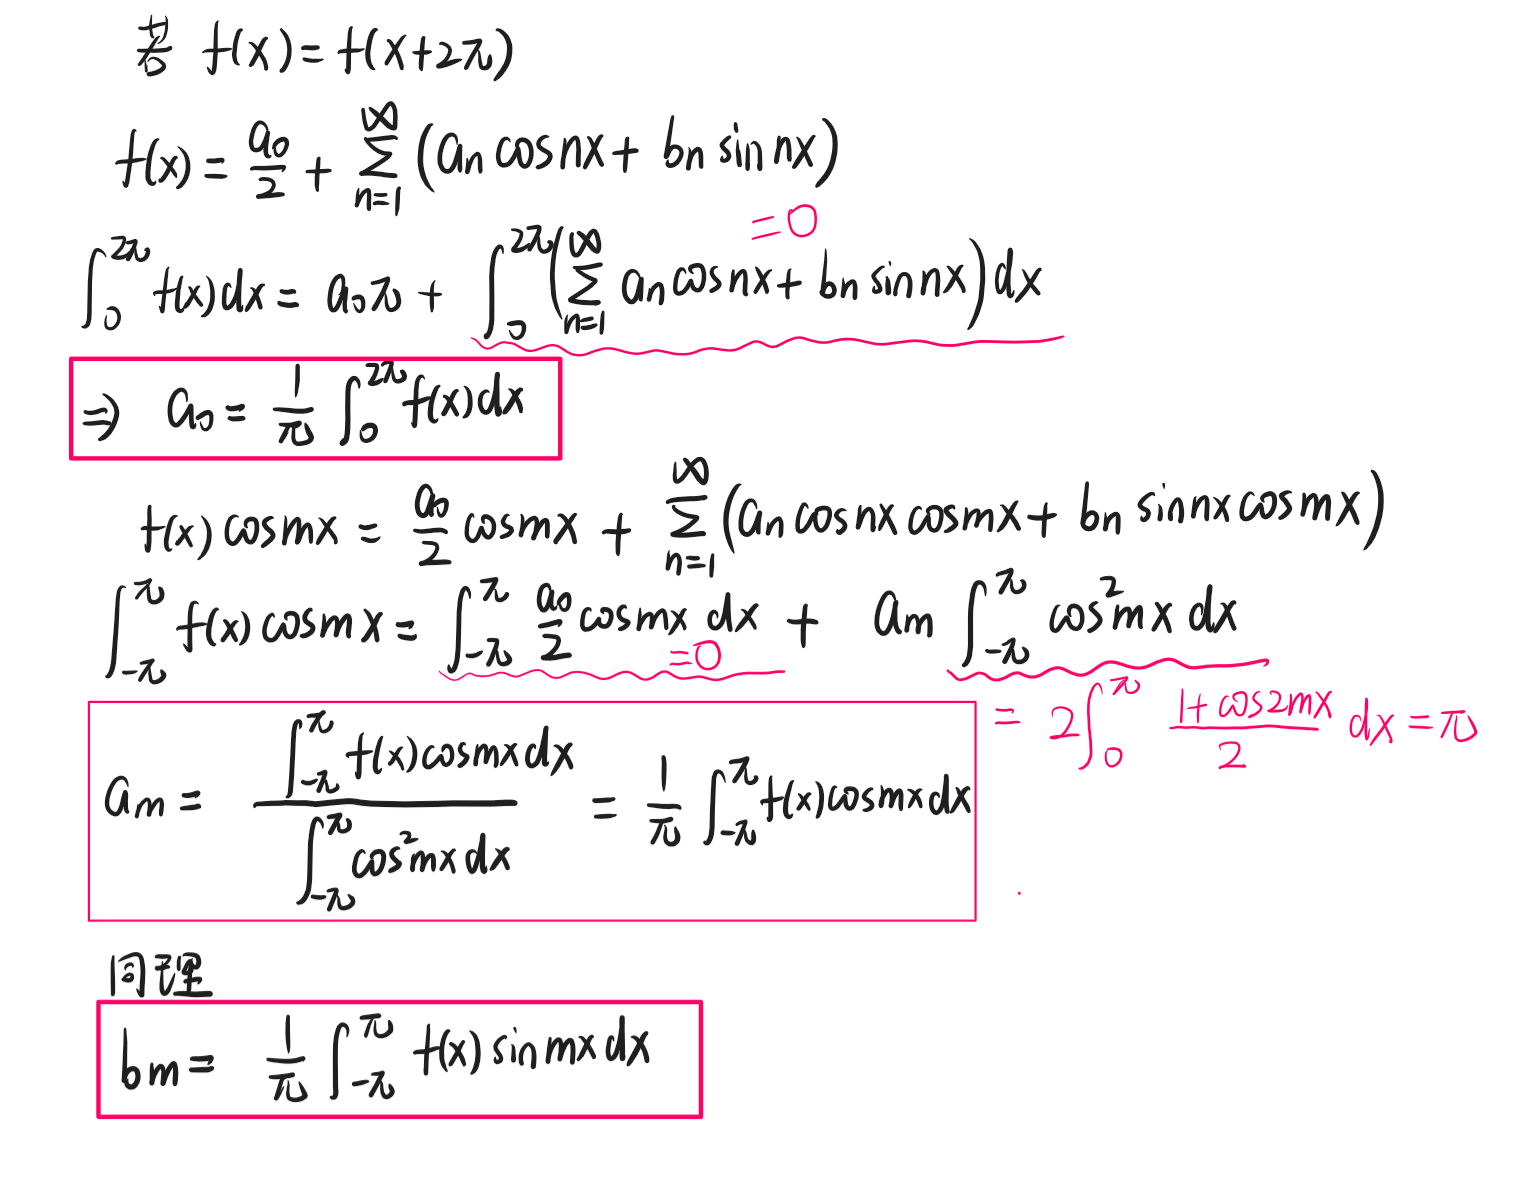 若 f(x)=f(x+2π)
f(x) = a₀/2 + ∑_{n=1}^{∞} (aₙ cosnx + bₙ sin nx)
=0
∫₀^{2π} f(x)dx = a₀π + ∫₀^{2π} (∑_{n=1}^{∞} aₙ cosnx + bₙ sin nx) dx
⇒ a₀ = 1/π ∫₀^{2π} f(x)dx
f(x) cosmx = a₀/2 cosmx + ∑_{n=1}^{∞} (aₙ cosnx cosmx + bₙ sinnx cosmx)
∫_{-π}^{π} f(x) cosmx = ∫_{-π}^{π} a₀/2 cosmx dx + aₘ ∫_{-π}^{π} cos²mx dx
=0
= 2∫₀^{π} (1+cos2mx)/2 dx = π
aₘ = ∫_{-π}^{π} f(x)cosmx dx / ∫_{-π}^{π} cos²mx dx = 1/π ∫_{-π}^{π} f(x)cosmx dx
同理
bₘ = 1/π ∫_{-π}^{π} f(x) sin mx dx